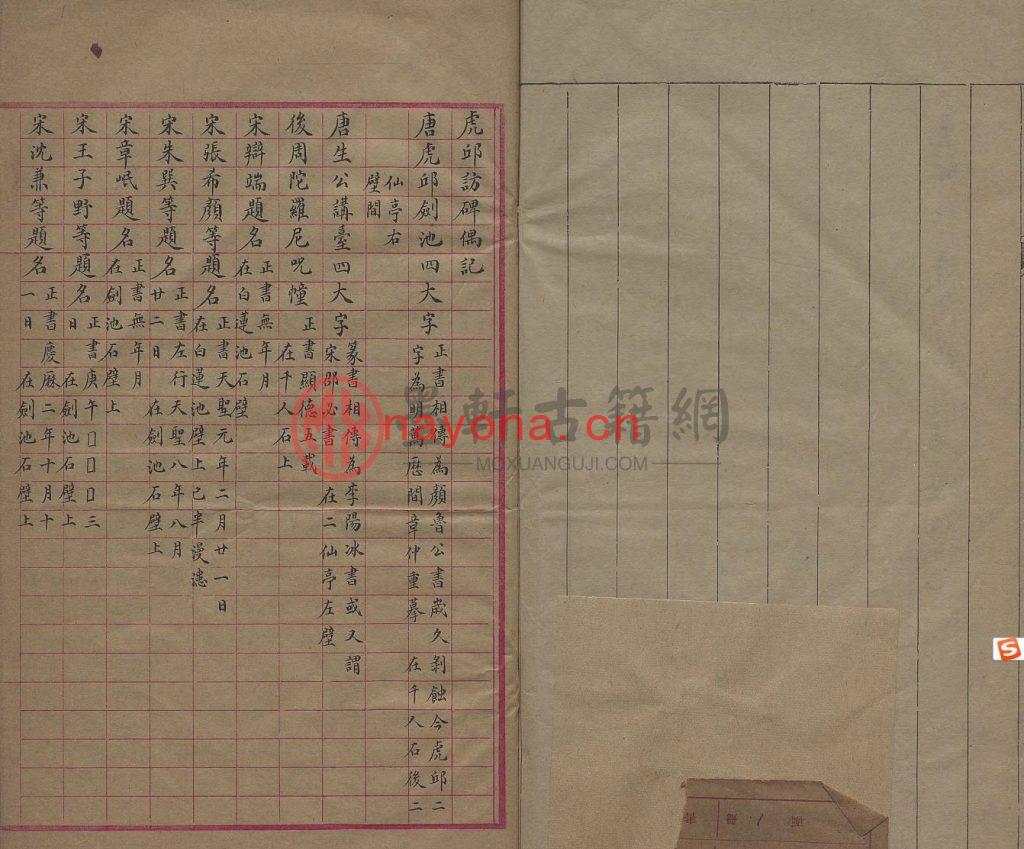 虎邱訪碑偶記
唐虎邱劍池四大字 正書相傳為顏魯公書歲久剝蝕今虎邱二
字為明萬曆間章仲重摹 在千人石後二
仙亭右
壁間
唐生公講臺四大字 篆書相傳為李陽冰書或又謂
宋邵必書 在二仙亭左壁
後周陀羅尼呪幢 正書顯德五載
在千人石上
宋辯端題名 正書無年月
在白蓮池石壁
宋張希顏等題名 正書天聖元年二月廿一日
在白蓮池壁上已半漫漶
宋朱巽等題名 正書左行天聖八年八月
廿二日 在劍池石壁上
宋章岷題名 正書無年月
在劍池石壁上
宋王子野等題名 正書庚午□□日三
日 在劍池石壁上
宋沈兼等題名 正書慶厤二年十月十
一日 在劍池石壁上
墨軒古籍網
nayona.cn
MOXUANGUJI.COM